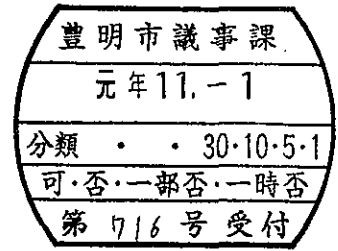 豊明市議事課
元年11.-1
分類 ・ ・ 30・10・5・1
可・否・一部否・一時否
第 716 号 受付